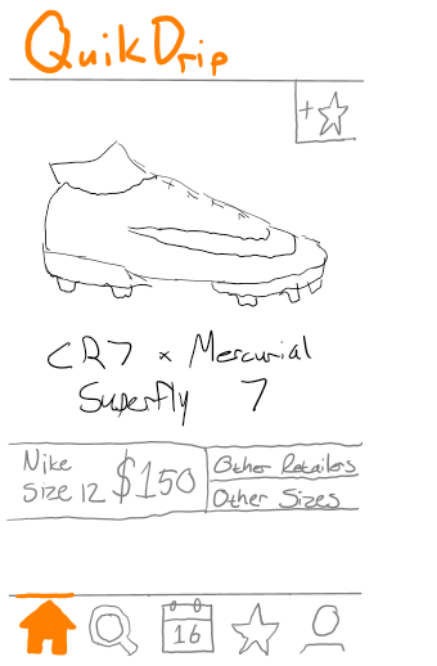 QuikDrip
+
CR7 x Mercurial
Superfly 7
Nike
Size 12 $150
Other Retailers
Other Sizes
16